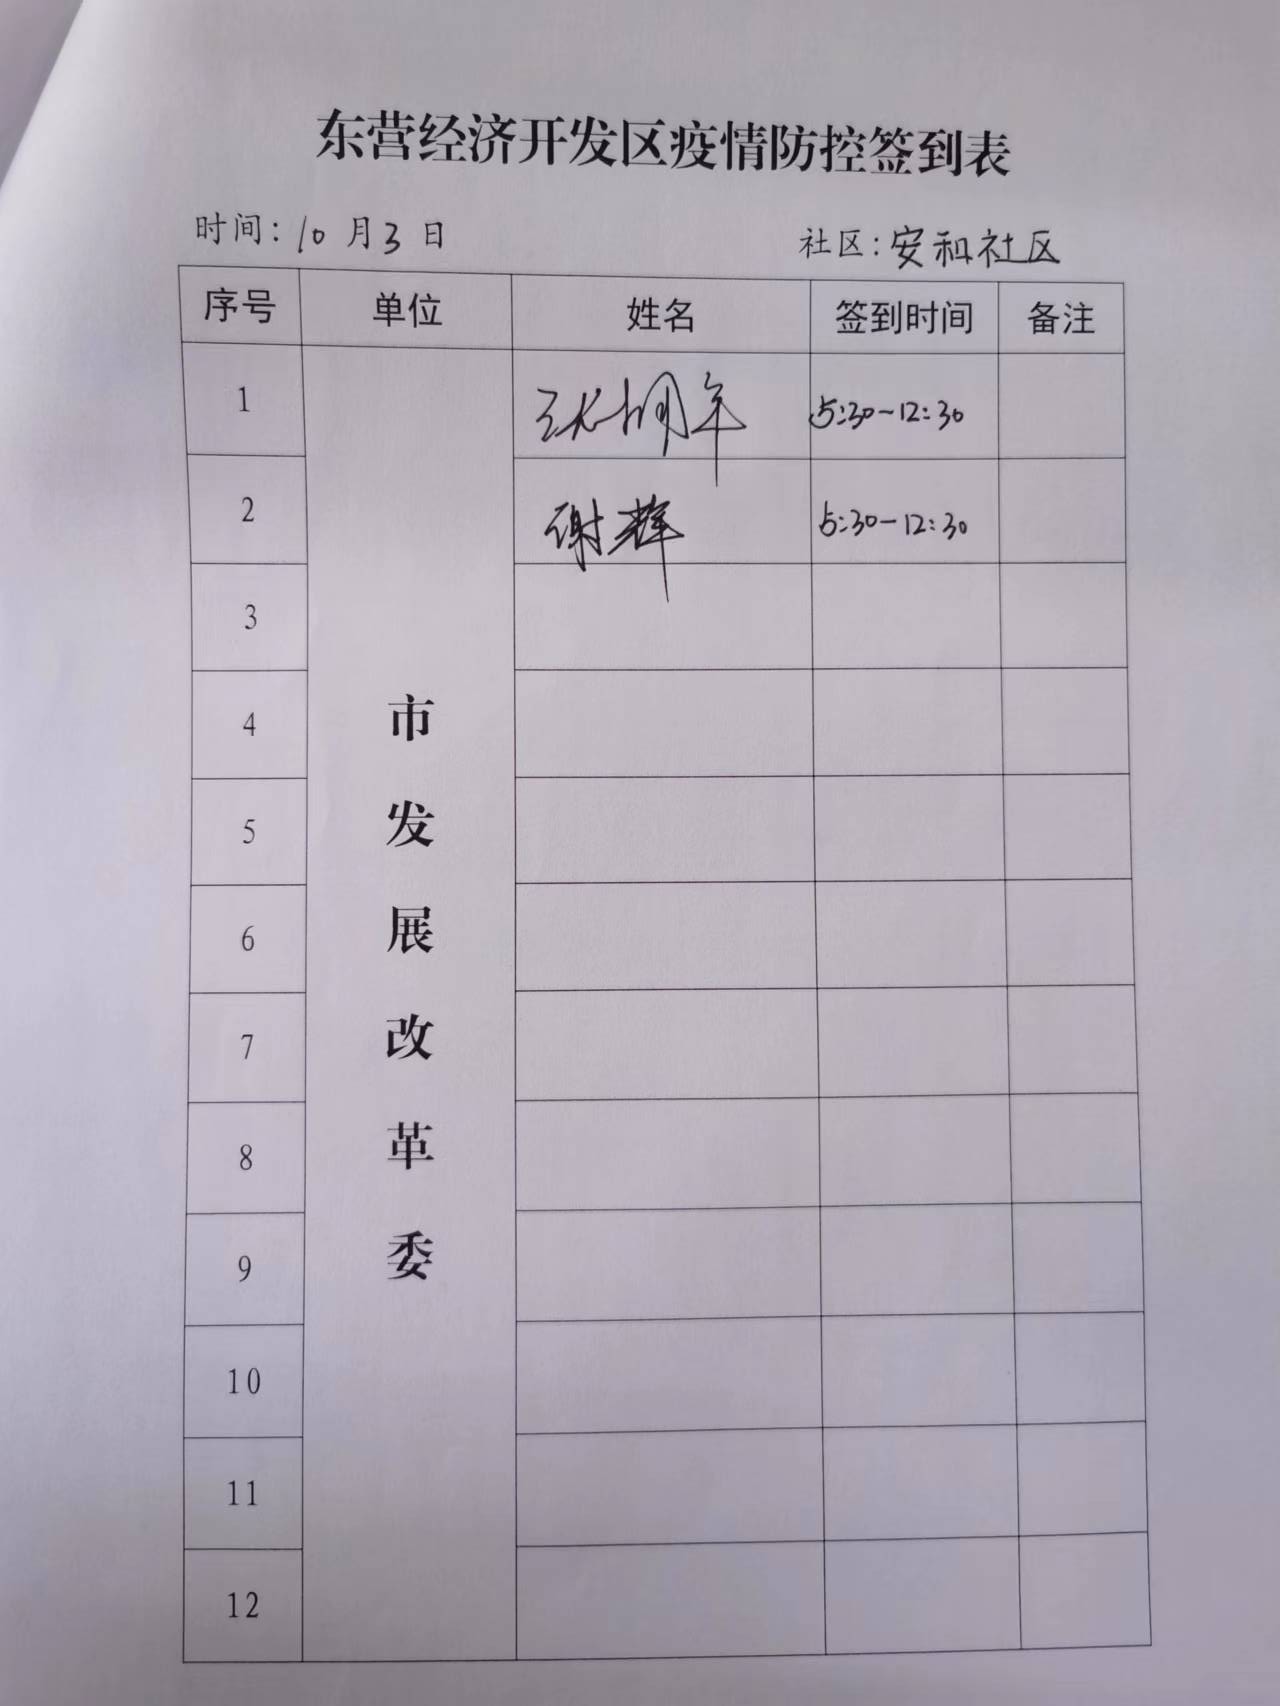 东营经济开发区疫情防控签到表
时间：10月3日 社区：安和社区
序号 单位 姓名 签到时间 备注
1 5:30-12:30
2 谢辉 5:30-12:30
3
4
5
6
7
8
9
10
11
12
市发展改革委